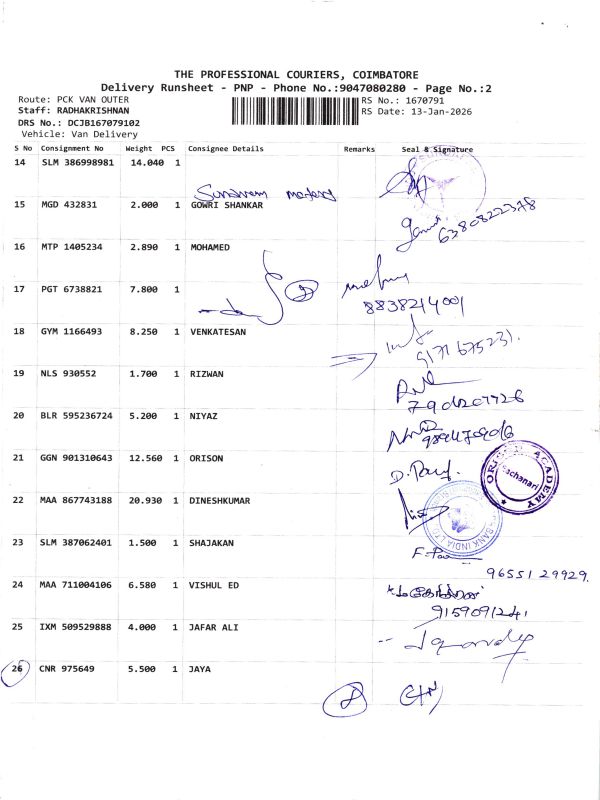 THE PROFESSIONAL COURIERS, COIMBATORE
Delivery Runsheet - PNP - Phone No.:9047080280 - Page No.:2
Route: PCK VAN OUTER
RS No.: 1670791
Staff: RADHAKRISHNAN
RS Date: 13-Jan-2026
DRS No.: DCJB167079102
Vehicle: Van Delivery
S No Consignment No Weight PCS Consignee Details Remarks Seal & Signature
14 SLM 386998981 14.040 1
15 MGD 432831 2.000 1 GOWRI SHANKAR
6380822378
16 MTP 1405234 2.890 1 MOHAMED
17 PGT 6738821 7.800 1
8838214001
18 GYM 1166493 8.250 1 VENKATESAN
19 NLS 930552 1.700 1 RIZWAN
20 BLR 595236724 5.200 1 NIYAZ
21 GGN 901310643 12.560 1 ORISON
ACADEMY
22 MAA 867743188 20.930 1 DINESHKUMAR
BANK INDIA LTD
23 SLM 387062401 1.500 1 SHAJAKAN
96551 29929
24 MAA 711004106 6.580 1 VISHUL ED
9159091241
25 IXM 509529888 4.000 1 JAFAR ALI
26 CNR 975649 5.500 1 JAYA